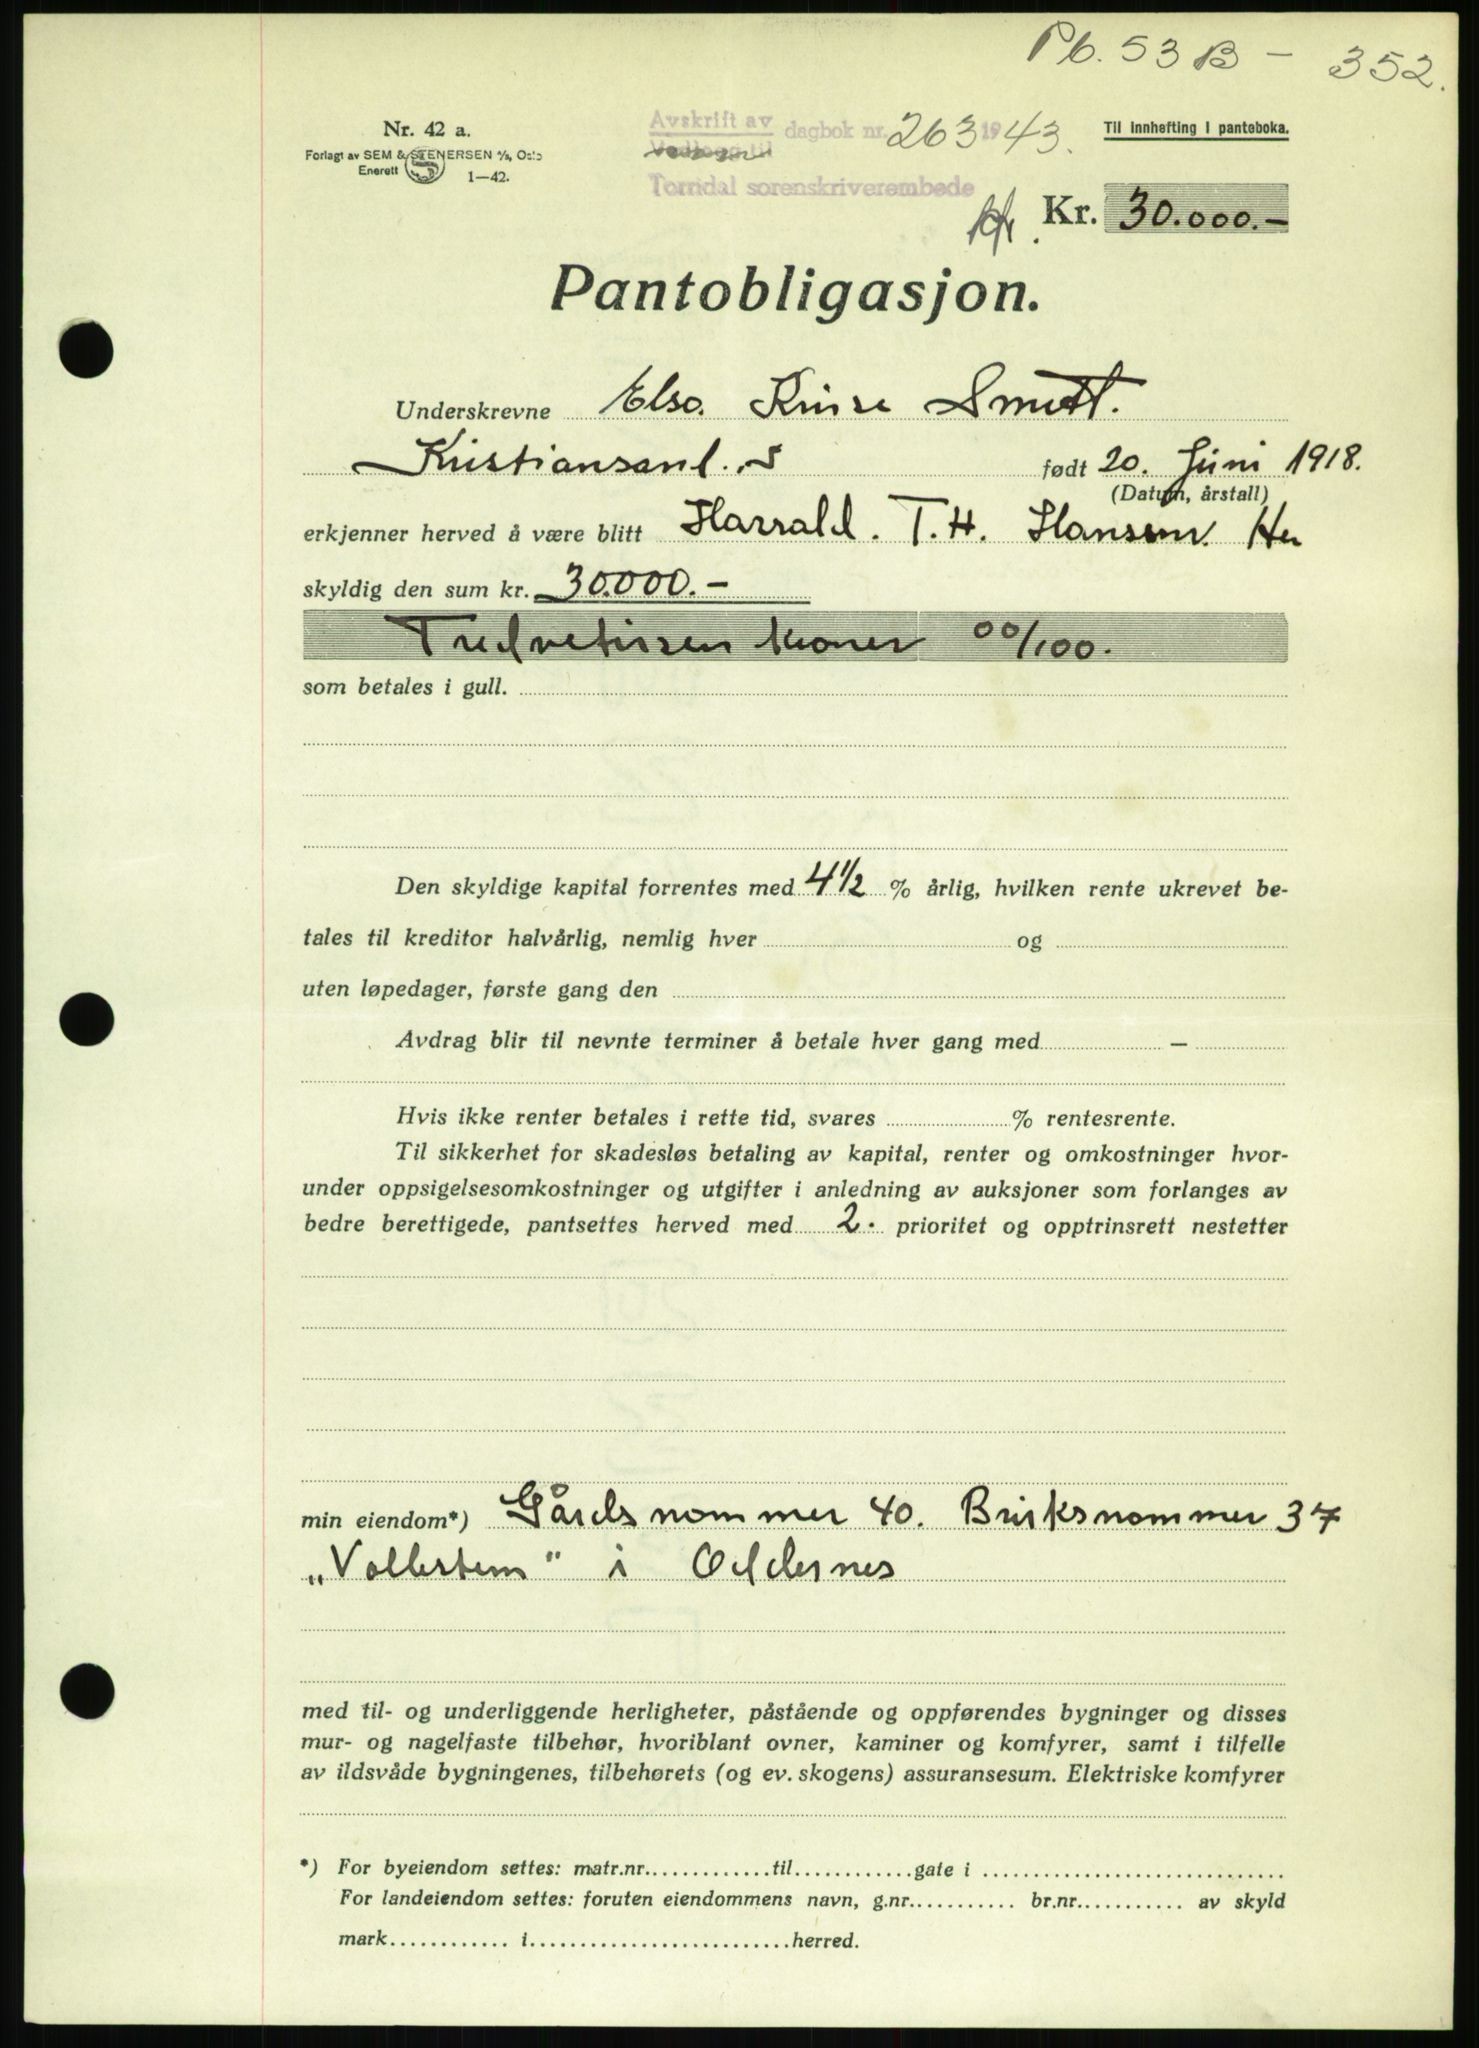 Pb. 53 B - 352.
Nr. 42 a.
Forlagt av SEM & STENERSEN A/S, Oslo
Enerett 1—42.
Avskrift av
Vedlegg til
dagbok nr. 263 1943.
Torridal sorenskriverembede
Til innhefting i panteboka.
Kr. 30.000.—
Pantobligasjon.
Underskrevne Else Kruse Smitt.
Kristiansand. S født 20. Juni 1918.
(Datum, årstall)
erkjenner herved å være blitt Harrald. T. H. Hansen.
skyldig den sum kr. 30.000.—
Tredvetusen kroner 00/100.
som betales i gull.
Den skyldige kapital forrentes med 4 1/2 % årlig, hvilken rente ukrevet be-
tales til kreditor halvårlig, nemlig hver og
uten løpedager, første gang den
Avdrag blir til nevnte terminer å betale hver gang med —
Hvis ikke renter betales i rette tid, svares % rentesrente.
Til sikkerhet for skadesløs betaling av kapital, renter og omkostninger hvor-
under oppsigelsesomkostninger og utgifter i anledning av auksjoner som forlanges av
bedre berettigede, pantsettes herved med 2. prioritet og opptrinsrett nestetter
min eiendom*) Gårdsnommer 40. Bruksnommer 37
„Vollestem" i Oddernes
med til- og underliggende herligheter, påstående og oppførendes bygninger og disses
mur- og nagelfaste tilbehør, hvoriblant ovner, kaminer og komfyrer, samt i tilfelle
av ildsvåde bygningenes, tilbehørets (og ev. skogens) assuransesum. Elektriske komfyrer
*) For byeiendom settes: matr.nr.............til............gate i ..............................
For landeiendom settes: foruten eiendommens navn, g.nr........... br.nr........... av skyld
mark............ i..........................herred.